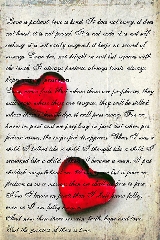 Love is patient, love is kind. It does not envy, it does not
boast, it is not proud. It is not rude, it is not self
seeking, it is not easily angered, it keeps no record of
wrongs. Love does not delight in evil but rejoices with
the truth. It always protects, always trusts, always
Love never fails. But where there are prophecies, they
will cease where there are tongues, they will be stilled
where there is knowledge, it will pass away. For we
know in part and we prophesy in part but when
perfection comes, the imperfect disappears. When I was a
child, I talked like a child, I thought like a child, I
reasoned like a child. When I became a man, I put
childish ways behind me. Now we see but a poor
face to face.
Now I know in part then I shall know fully,
even as I am fully
And now these three remain faith, hope and love.
But the greatest of these is love.